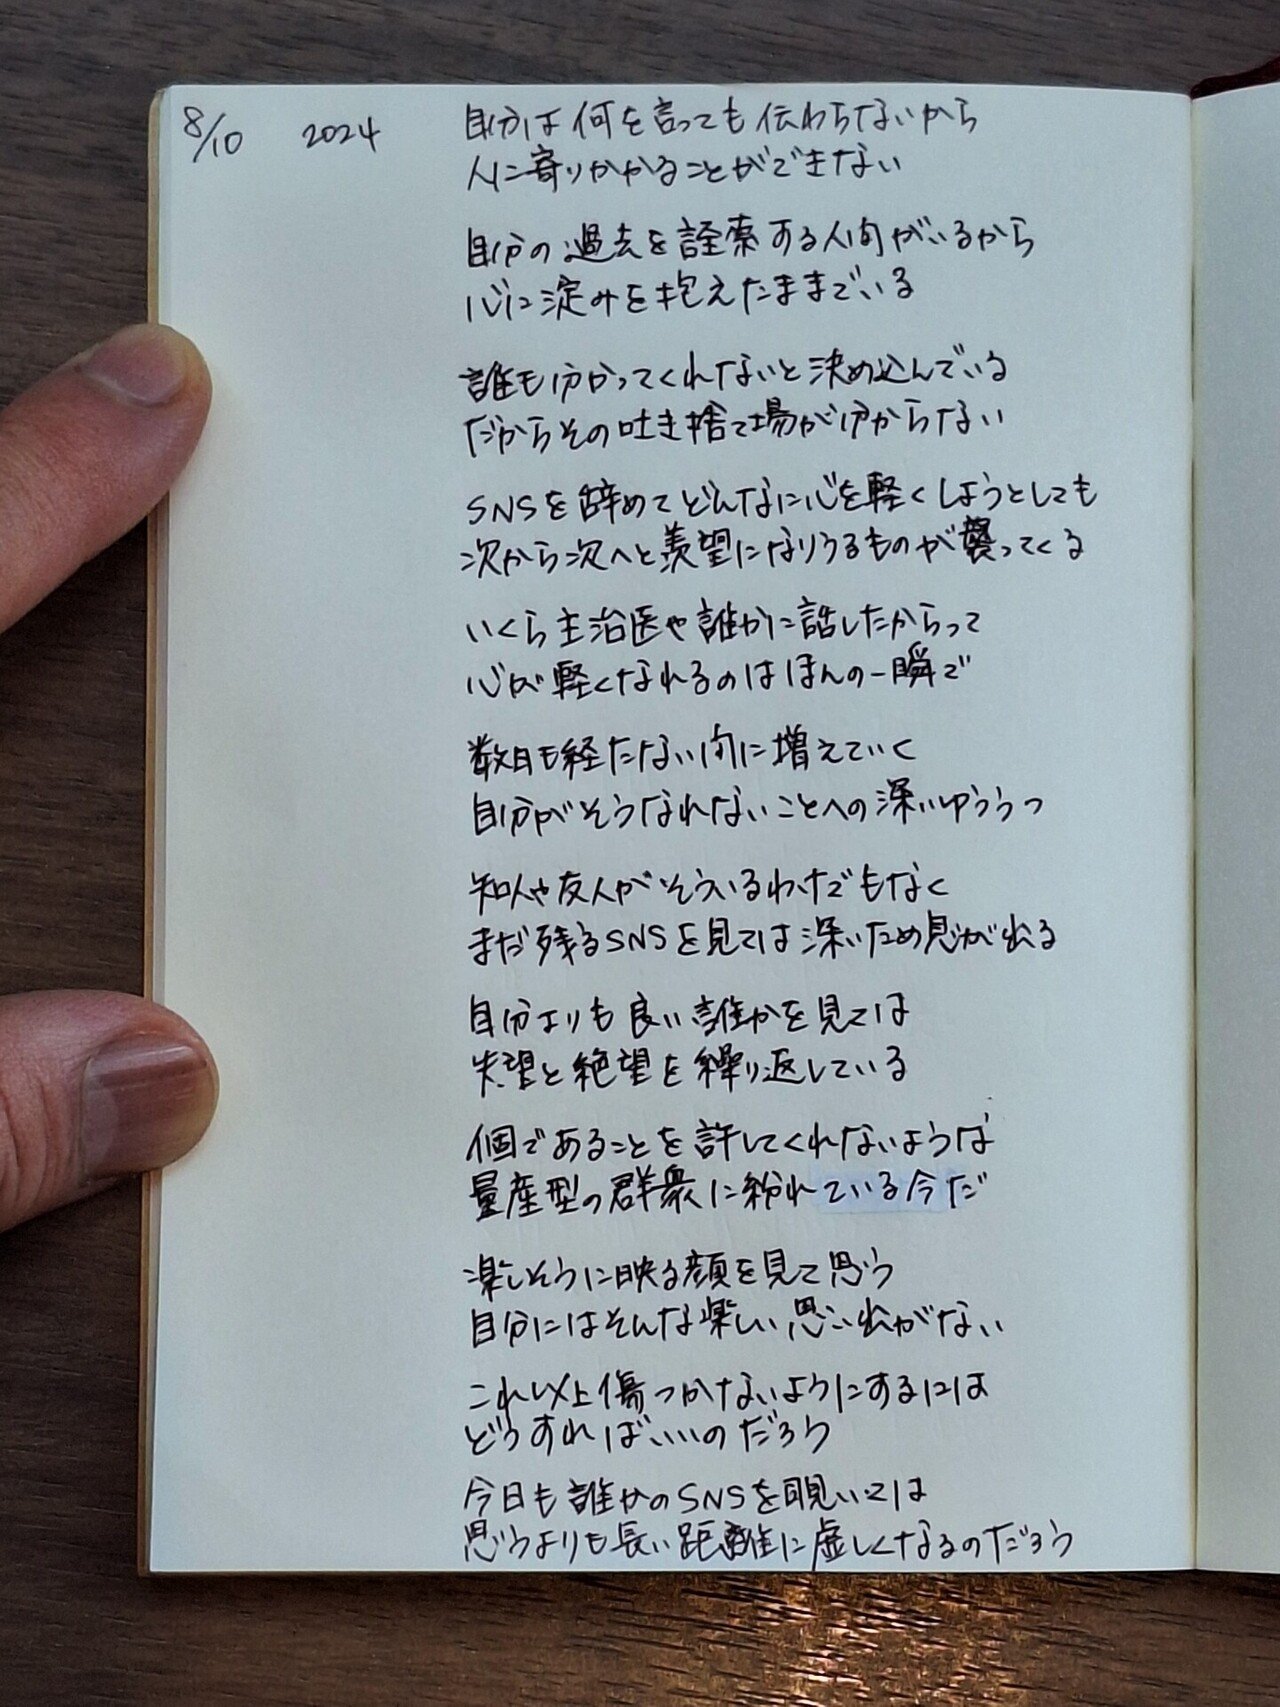 8/10 2024
自分は何を言っても伝わらないから
人に寄りかかることができない
自分の過去を詮索する人間がいるから
心に淀みを抱えたままでいる
誰も分かってくれないと決め込んでいる
だからその吐き捨て場が分からない
SNSを辞めてどんなに心を軽くしようとしても
次から次へと羨望になりうるものが襲ってくる
いくら主治医や誰かに話したからって
心が軽くなれるのはほんの一瞬で
数日も経たない内に増えていく
自分がそうなれないことへの深いゆううつ
知人や友人がそういるわけでもなく
まだ残るSNSを見ては深いため息が出る
自分よりも良い誰かを見ては
失望と絶望を繰り返している
個であることを許してくれないような
量産型の群衆に紛れている今だ
楽しそうに映る顔を見て思う
自分にはそんな楽しい思い出がない
これ以上傷つかないようにするには
どうすればいいのだろう
今日も誰かのSNSを覗いては
思うよりも長い距離に虚しくなるのだろう